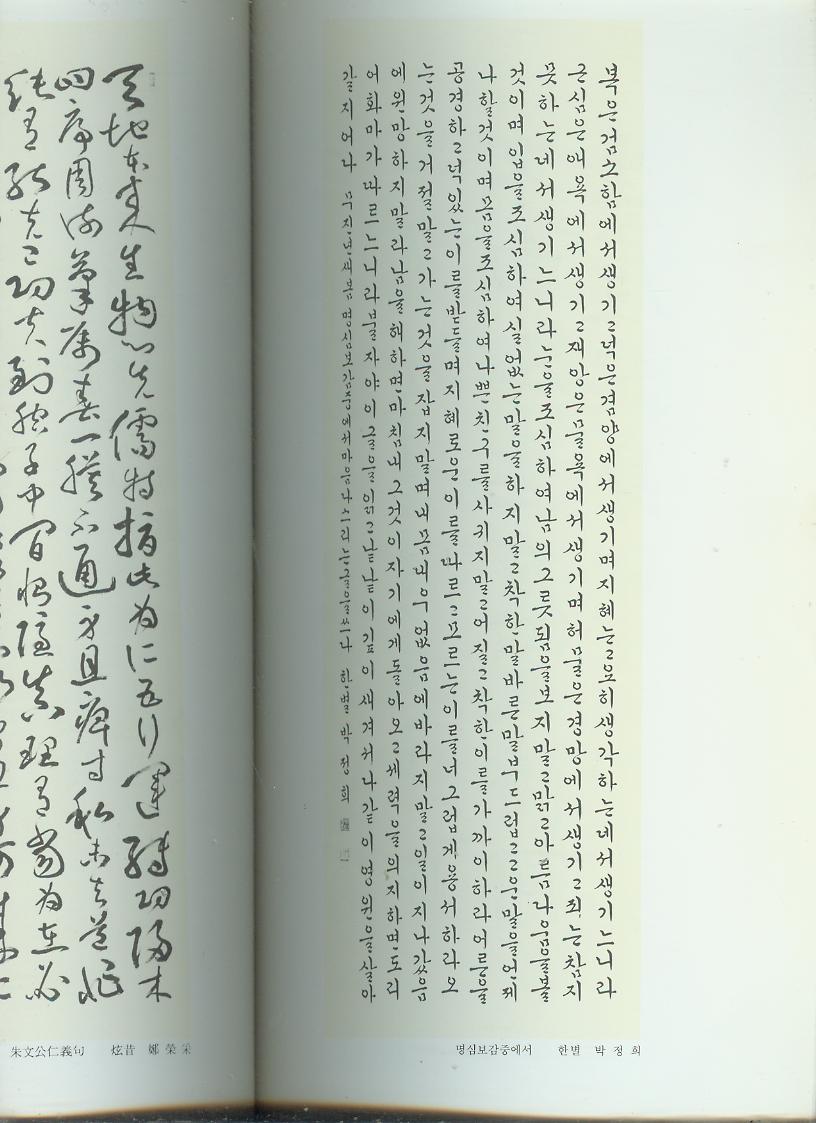 복은검소함에서생기고덕은겸양에서생기며지혜는고요히생각하는데서생기느니라
근심은애욕에서생기고재앙은물욕에서생기며허물은경망에서생기고죄는참지
못하는데서생기느니라눈을조심하여남의그릇됨을보지말고맑고아름다움을볼
것이며입을조심하여실없는말을하지말고착한말바른말부드럽고고운말을언제
나할것이며몸을조심하여나쁜친구를사귀지말고어질고착한이를가까이하라어른을
공경하고덕있는이를받들며지혜로운이를따르고모르는이를너그럽게용서하라오
는것을거절말고가는것을잡지말며내몸대우없음에바라지말고일이지나갔음
에원망하지말라남을해하면마침내그것이자기에게돌아오고세력을의지하면도리
어화마가따르느니라불자야이글을읽고낱낱이깊이새겨서다같이영원을살아
갈지어다 무진년새봄명심보감중에서마음다스리는글을쓰다 한별 박정희
명심보감중에서 한별 박정희
天地本來生物心先儒特指此為仁五行運轉功陽木
四序周流氣屬春一膜不通身且痺寸私未去道非
朱文公仁義句 炫昔 鄭榮采